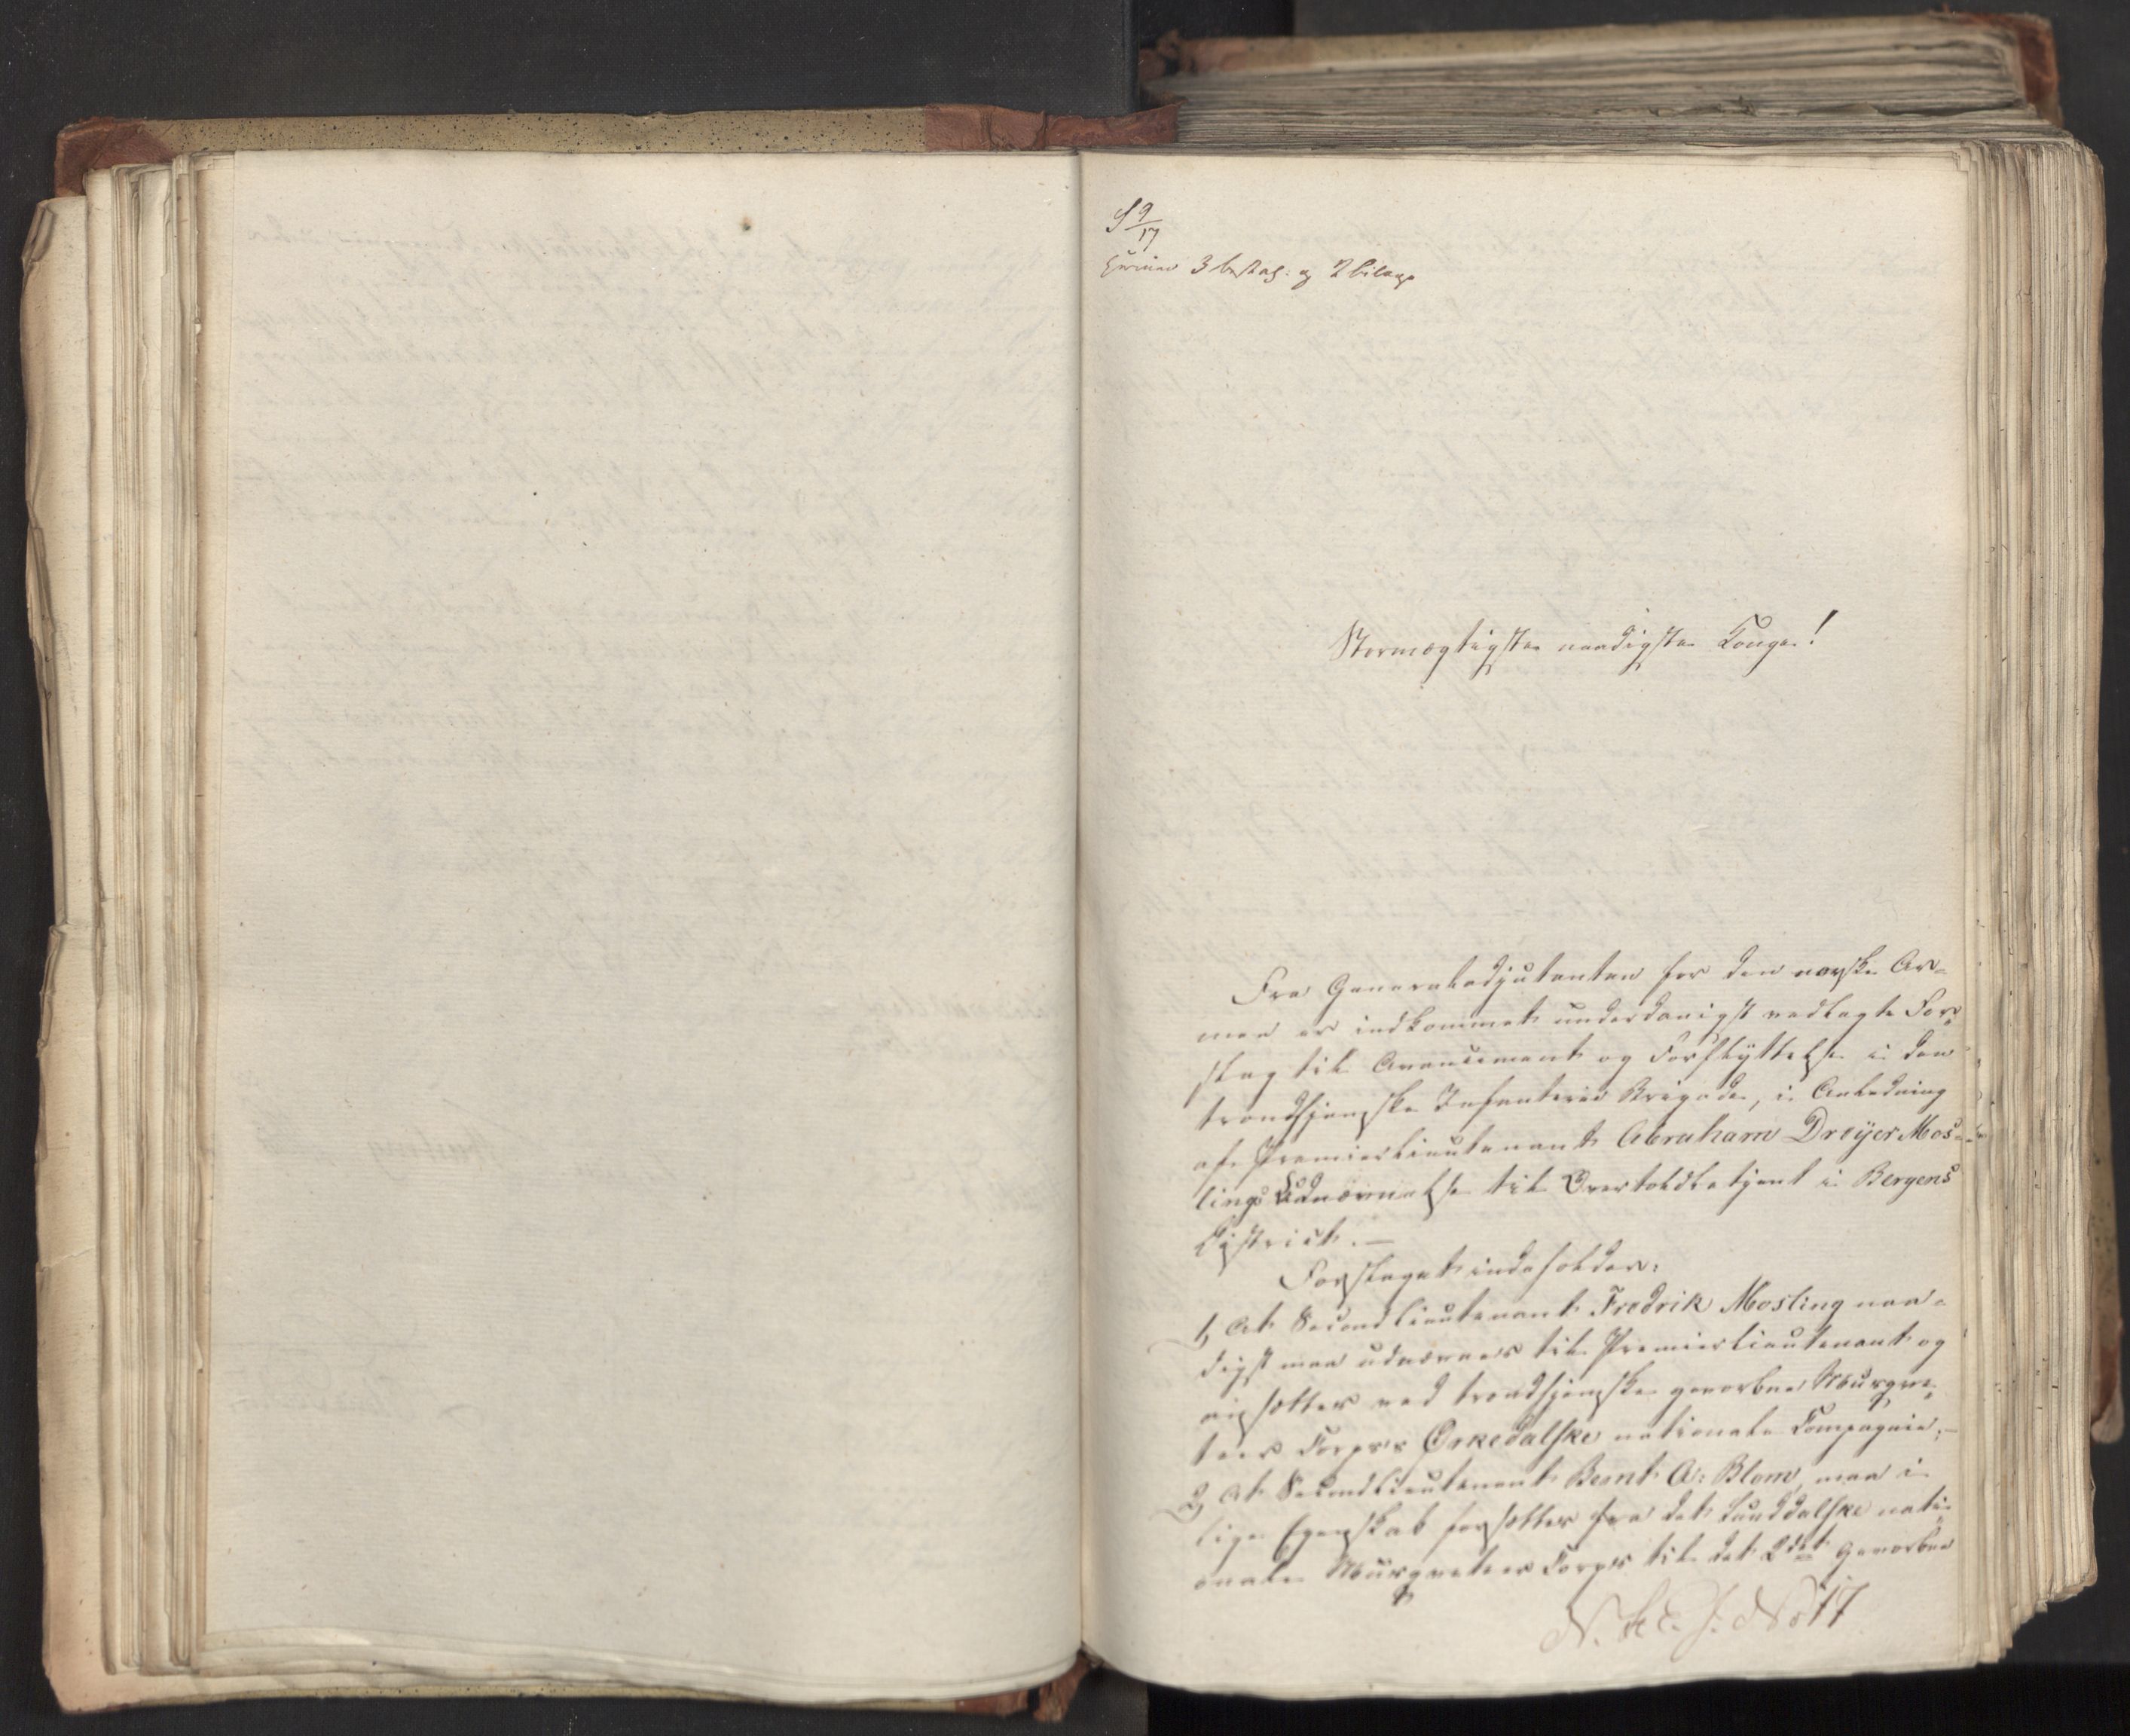 S 9/17
herved 3 beslag: og 2 bilage
Stormægtigste naadigste Konge!
Fra Generaladjutanten for den norske Ar-
mee er indkommet underdanigst vedlagte For-
slag til Avancement og Forflyttelse i den
trondhjemske Infanterie Brigade, i Anledning
af Premierlieutenant Abraham Dreÿer Mos-
lings Udnævnelse til Overtoldbetjent i Bergens
District. —
Forslaget indeholder:
1, At Secondlieutenant Fredrik Mosling naa-
digst maa udnævnes til Premierlieutenant og
ansættes ved trondhjemske gevorbne Musque-
teer Corps's Ørkedalske nationale Compagnie; —
2, At Secondlieutenant Bernt A: Blom, maa i
lige Egenskab forsættes fra det Sunddalske nati-
onale Musqueteer Corps til det 2det gevorbne
N. St. E. J. No 17